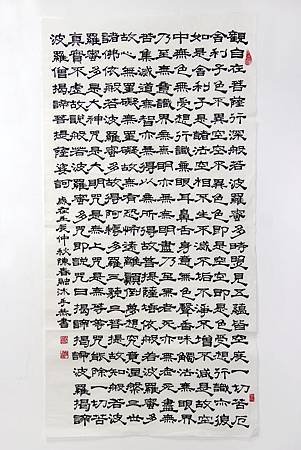 觀自在菩薩行深般若波羅蜜多時照見五蘊皆空度一切苦厄
舍利子色不異空空不異色色即是空空即是色受想行識亦復
如是舍利子是諸法空相不生不滅不垢不淨不增不減是故空
中無色無受想行識無眼耳鼻舌身意無色聲香味觸法無眼界
乃至無意識界無無明亦無無明盡乃至無老死亦無老死盡無
苦集滅道無智亦無得以無所得故菩提薩埵依般若波羅蜜多
故心無罣礙無罣礙故無有恐怖遠離顛倒夢想究竟涅槃三世
諸佛依般若波羅蜜多故得阿耨多羅三藐三菩提故知般若波
羅蜜多是大神咒是大明咒是無上咒是無等等咒能除一切苦
真實不虛故說般若波羅蜜多咒即說咒曰揭諦揭諦波羅揭諦
波羅僧揭諦菩提薩婆訶
歲在壬辰仲秋陳春融沐手恭書